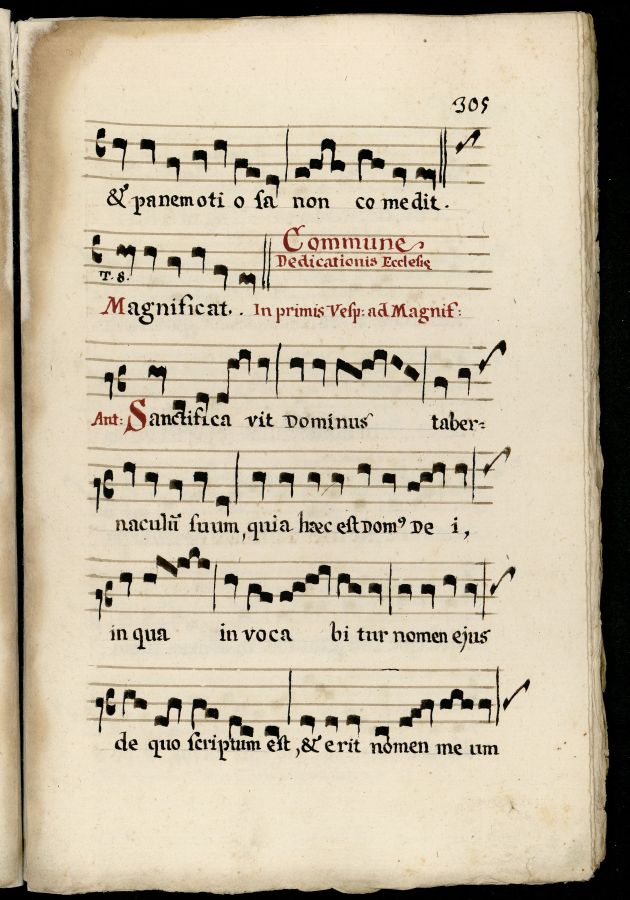 305
& panem oti o sa non co medit.
T. 8.
Commune
Dedicationis Ecclesię
Magnificat. . In primis Vesp: ad Magnif:
Ant: Sanctifica vit Dominus taber=
naculū suum, quia hæc est Dom⁹ De i,
in qua in voca bi tur nomen ejus
de quo scriptum est, & erit nomen me um